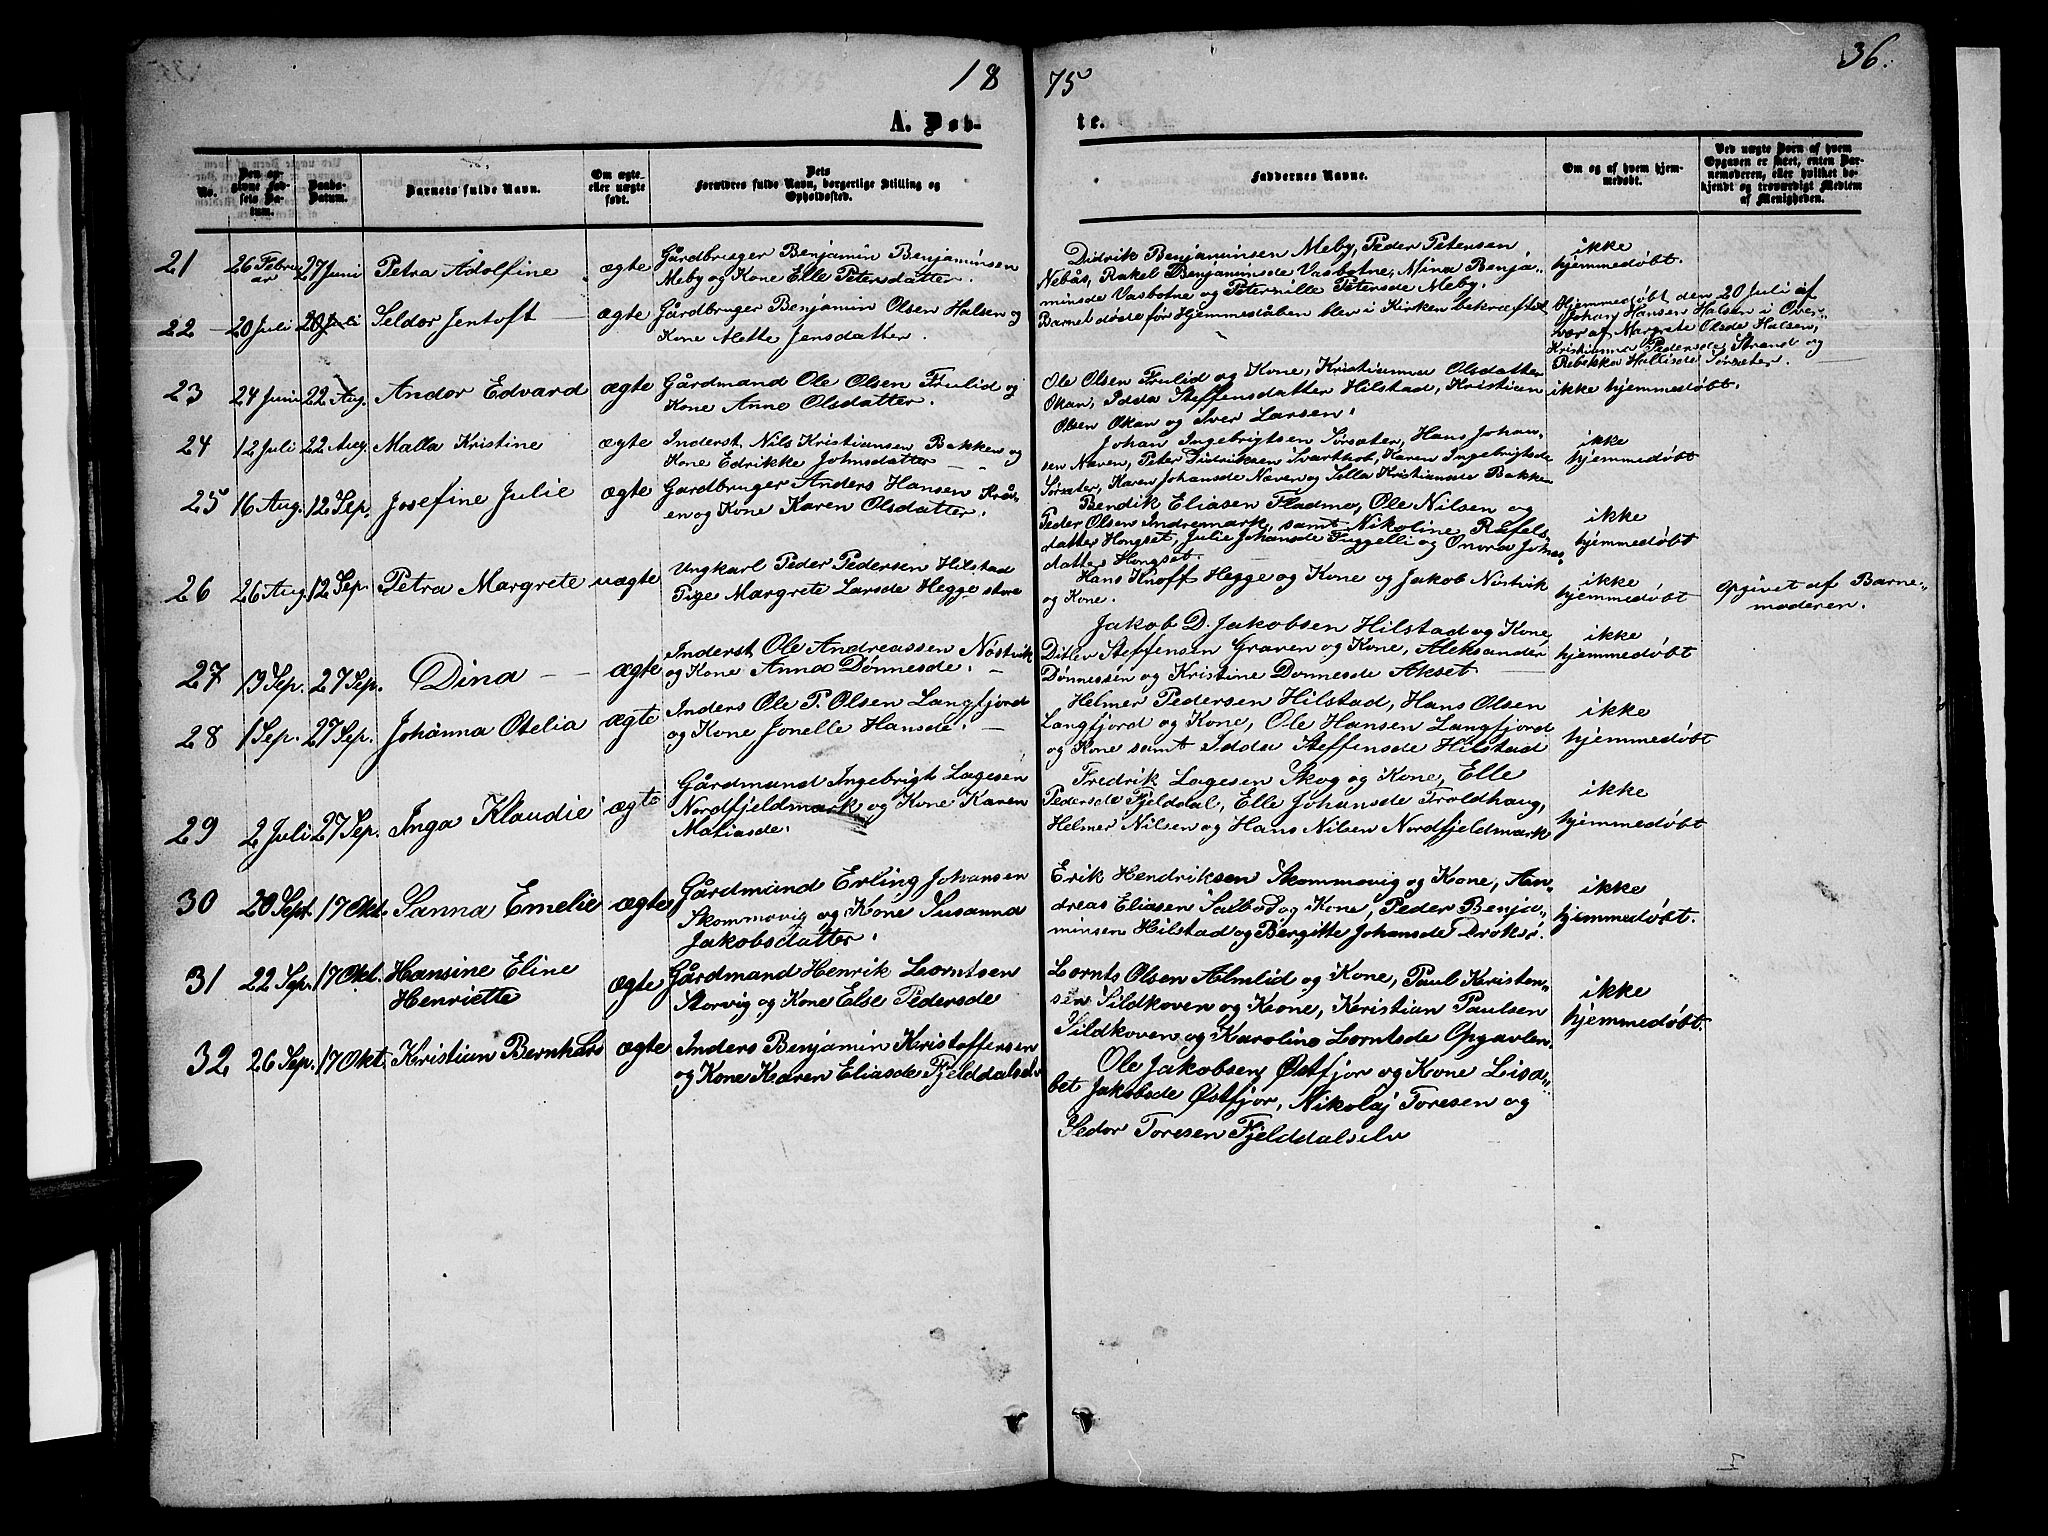 36.
18 75
A. Døb- te.
No.
Den op-
givne Fød-
sels Da-
tum.
Daabs-
Datum.
Barnets fulde Navn.
Om ægte
eller uægte
født.
Dets
Forældres fulde Navn, borgerlige Stilling og
Opholdssted.
Faddernes Navne.
Om og af hvem hjem-
medøbt.
Ved uægte Børn af hvem
Opgaven er sket, enten Bar-
nemoderen, eller hvilket be-
kjendt og troværdigt Medlem
af Menigheden.
21 26 Febru
ar 27 Juni Petra Adolfine ægte
Gårdbruger Benjamin Benjaminsen
Meby og Kone Elle Petersdatter.
Didrik Benjaminsen Meby, Peder Petersen
Nebås, Rakel Benjaminsde Vasbotne, Mina Benja-
minsde Vasbotne og Peternille Petersde Meby.
ikke
hjemmedøbt.
22 20 Juli 20 Juli Seldor Jentoft ægte
Gårdbruger Benjamin Olsen Halsen og
Kone Alette Jensdatter.
Barnet døde før Hjemmedåben blev i Kirken bekræftet
Hjemmedøbt den 20 Juli af
Johan Hansen Halsen i Over-
vær af Margrete Olsde Halsen,
Kristianna Pedersde Strand og
Rebekka Hallisde Sørsæter.
23 24 Juni 22 Aug. Andor Edvard ægte
Gårdmand Ole Olsen Frulid og
Kone Anne Olsdatter.
Ole Olsen Frulid og Kone, Kristianna Olsdatter
Okan, Idda Steffensdatter Hilstad, Kristian
Olsen Okan og Iver Larsen.
ikke hjemmedøbt.
24 12 Juli 22 Aug. Malla Kristine ægte
Inderst Nils Kristiansen Bakken og
Kone Edrikke Johnsdatter
Johan Ingebrigtsen Sørsæter, Hans Johan-
sen Naven, Peter Didriksen Svarthob, Karen Ingebrigtsde
Sørsæter, Karen Johansde Naven og Solla Kristiansde Bakken
ikke
hjemmedøbt
25 16 Aug. 12 Sep. Josefine Julie ægte
Gardbruger Anders Hansen Krå-
en og Kone Karen Olsdatter.
Bendik Eliasen Fladmo, Ole Nilsen og
Peder Olsen Indremark, samt Nikoline Rafels
datter Hongset, Julie Johansde Tuggelli og Onora Johns
datter Hongset.
ikke
hjemmedøbt
26 26 Aug. 12 Sep. Petra Margrete uægte
Ungkarl Peder Pedersen Hilstad
Pige Margrete Larsde Hegge store
Hans Knoff Hegge og Kone og Jakob Nøstvik
og Kone.
ikke
hjemmedøbt
Opgivet af Barne-
moderen.
27 19 Sep. 27 Sep. Dina ægte
Inderst Ole Andreassen Nøstvik
og Kone Anna Dønnesde.
Jakob D. Jakobsen Hilstad og Kone
Ditlev Steffensen Graven og Kone, Aleksander
Dønnessen og Kristine Dønnesde Akset
ikke
hjemmedøbt
28 1 Sep. 27 Sep. Johanna Otelia ægte
Inders Ole P. Olsen Langfjord
og Kone Jonelle Hansde.
Helmer Pedersen Hilstad, Hans Olsen
Langfjord og Kone, Ole Hansen Langfjord
og Kone samt Idda Steffensde Hilstad
ikke
hjemmedøbt
29 2 Juli 27 Sep. Inga Klaudie ægte
Gårdmand Ingebrigt Lagesen
Nordfjeldmark og Kone Karen
Matiasde.
Fredrik Lagesen Skog og Kone, Elle
Pedersde Fjelddal, Elle Johansde Troldhaug,
Helmer Nilsen og Hans Nilsen Nordfjeldmark
ikke
hjemmedøbt
30 20 Sept. 17 Okt. Sanna Emelie ægte
Gårdmand Erling Johansen
Skommovig og Kone Susanna
Jakobsdatter.
Erik Hendriksen Skommovig og Kone, An-
dreas Eliasen Salbod og Kone, Peder Benja-
minsen Hilstad og Bergitte Johansde
ikke
hjemmedøbt.
31 22 Sep. 17 Okt. Hansine Eline
Henriette ægte
Gårdmand Henrik Lorntsen
Storvig og Kone Else Pedersde
Lornts Olsen Almlid og Kone, Paul Kristen-
sen Sildkoven og Kone, Kristian Paulsen
Sildkoven og Karoline Lorntsde Opgavlen.
ikke
hjemmedøbt.
32 26 Sep. 17 Okt. Kristian Bernhard ægte
Inders Benjamin Kristoffersen
og Kone Karen Eliasde Fjelddalselv
Ole Jakobsen Østfjor og Kone Lisa-
bet Jakobsde Østfjor, Nikolaj Toresen og
Sedor Toresen Fjelddalselv